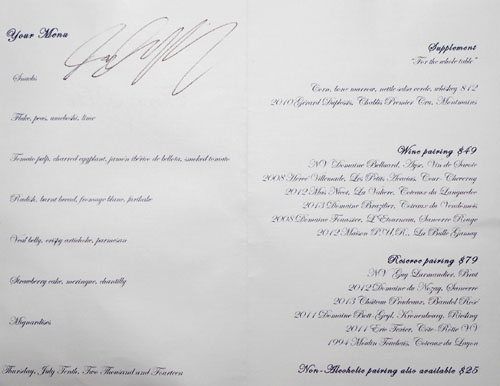 Your Menu
Snacks
Fluke, peas, umeboshi, lime
Tomato pulp, charred eggplant, jamón ibérico de bellota, smoked tomato
Radish, burnt bread, fromage blanc,
Veal belly, crispy artichoke, parmesan
Strawberry cake, meringue, chantilly
Mignardises
Thursday, July Tenth, Two Thousand and Fourteen
Supplement
"For the whole table"
Corn, bone marrow, nettle salsa verde, whiskey $12
2010 Gérard Duplessis, Chablis Premier Cru, Montmains
Wine pairing $49
NV Domaine Belluard, Ayse, Vin de Savoie
2008 Hervé Villemade, Les Petits Acacias, Cour-Cheverny
2012 Mas Nicot, La Valière, Coteaux du Languedoc
2013 Domaine Brazilier, Coteaux du Vendomois
2008 Domaine Fouassier, L'Etourneau, Sancerre Rouge
2012 Maison P.U.R., La Bulle Gamay
Reserve pairing $79
NV Guy Larmandier, Brut
2012 Domaine du Nozay, Sancerre
2013 Château Pradeaux, Bandol Rosé
2011 Domaine Bott-Geyl, Kronenbourg, Riesling
2011 Eric Texier, Cote-Rôtie VV
1994 Moulin Touchais, Coteaux du Layon
Non-Alcoholic pairing also available $25